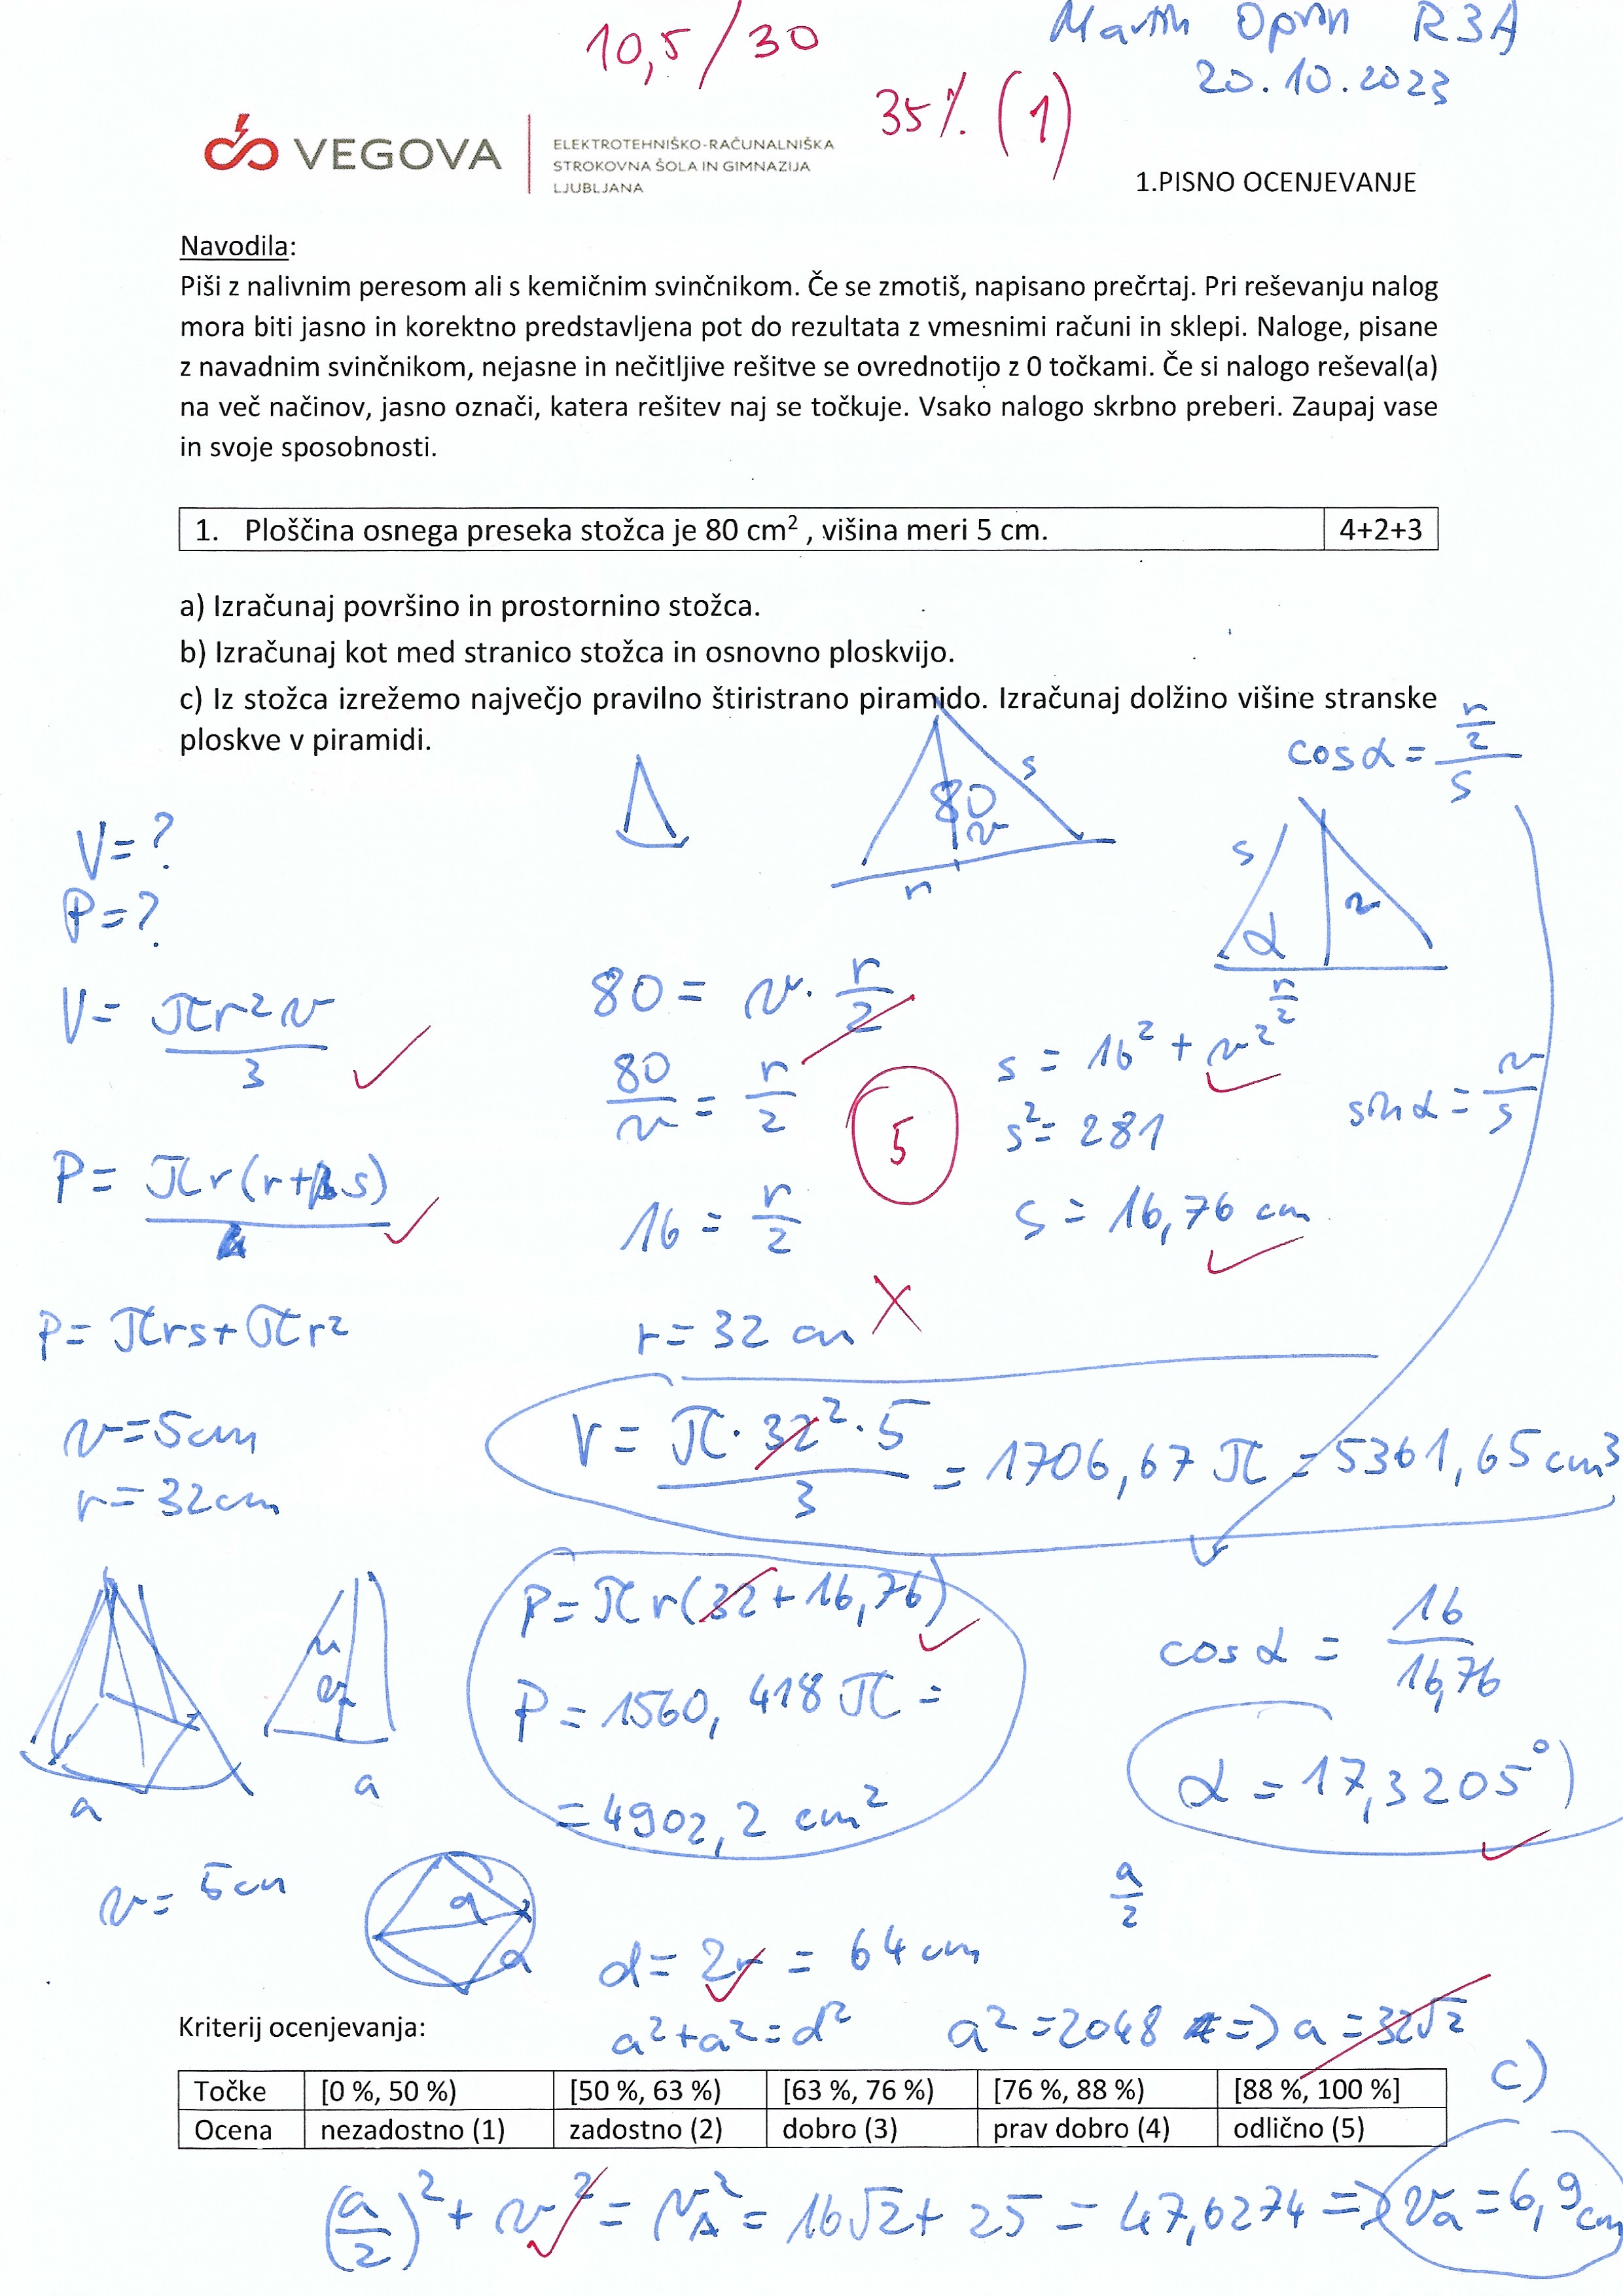 10,5/30
Martin Oprin R3A
20.10.2023
35% (1)
VEGOVA
ELEKTROTEHNIŠKO-RAČUNALNIŠKA
STROKOVNA ŠOLA IN GIMNAZIJA
LJUBLJANA
1.PISNO OCENJEVANJE
Navodila:
Piši z nalivnim peresom ali s kemičnim svinčnikom. Če se zmotiš, napisano prečrtaj. Pri reševanju nalog
mora biti jasno in korektno predstavljena pot do rezultata z vmesnimi računi in sklepi. Naloge, pisane
z navadnim svinčnikom, nejasne in nečitljive rešitve se ovrednotijo z 0 točkami. Če si nalogo reševal(a)
na več načinov, jasno označi, katera rešitev naj se točkuje. Vsako nalogo skrbno preberi. Zaupaj vase
in svoje sposobnosti.
1. Ploščina osnega preseka stožca je 80 cm² , višina meri 5 cm. 4+2+3
a) Izračunaj površino in prostornino stožca.
b) Izračunaj kot med stranico stožca in osnovno ploskvijo.
c) Iz stožca izrežemo največjo pravilno štiristrano piramido. Izračunaj dolžino višine stranske
ploskve v piramidi.
cosα = (r/2)/s
80
s
v
r
s
α
v
r/2
V=?
P=?
V= πr²v/3
80 = v · r/2
80/v = r/2
5
s = 16² + v²
s² = 281
sin α = v/s
P= πr(r+s)
16 = r/2
s = 16,76 cm
P= πrs+πr²
r=32 cm
v=5cm
r=32cm
V= π·32²·5/3 = 1706,67 π = 5361,65 cm³
P=πr(32+16,76)
P = 1560,418 π =
= 4902,2 cm²
cosα = 16/16,76
α = 17,3205°
a
a
v = 5cm
d
a
a/2
d = 2r = 64 cm
a²+a²=d²
a²=2048 => a = 32√2
c)
Kriterij ocenjevanja:
Točke [0 %, 50 %) [50 %, 63 %) [63 %, 76 %) [76 %, 88 %) [88 %, 100 %]
Ocena nezadostno (1) zadostno (2) dobro (3) prav dobro (4) odlično (5)
(a/2)² + v² = v_A² = 16√2 + 25 = 47,6274 => v_a = 6,9 cm